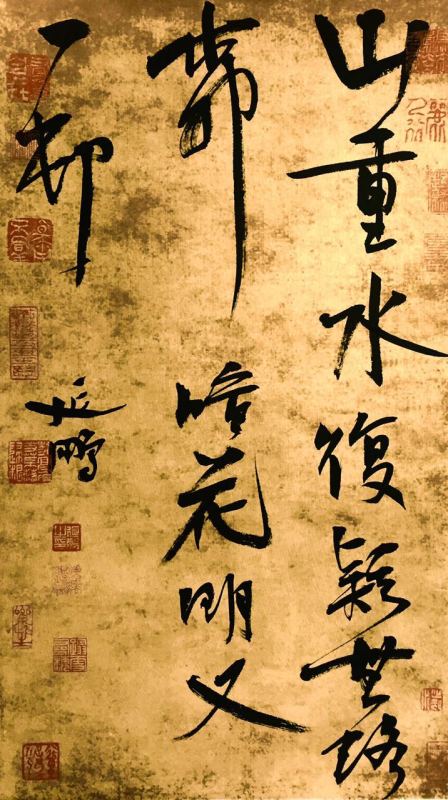 山重水復疑無路
柳暗花明又
一邨
延鵬